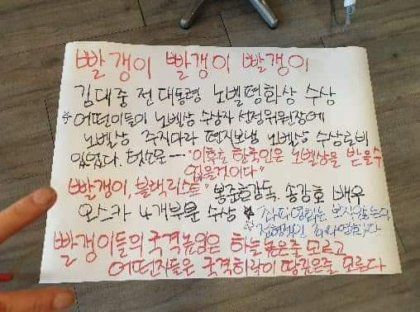 빨갱이 빨갱이 빨갱이
김대중 전 대통령 노벨평화상 수상
어떤이들이 노벨상 수상자 선정위원장에
노벨상 주지마라 편지보냄 노벨상 수상로비
있었다. 헛소문 --- "이후로 한국인은 노벨상을 받을수
없을것이다"
빨갱이, 블랙리스트 봉준호감독 송강호 배우
오스카 4개부문 수상
빨갱이들의 국격높임은 하늘높은줄 모르고
어떤자들은 국격하락이 땅깊은줄 모른다